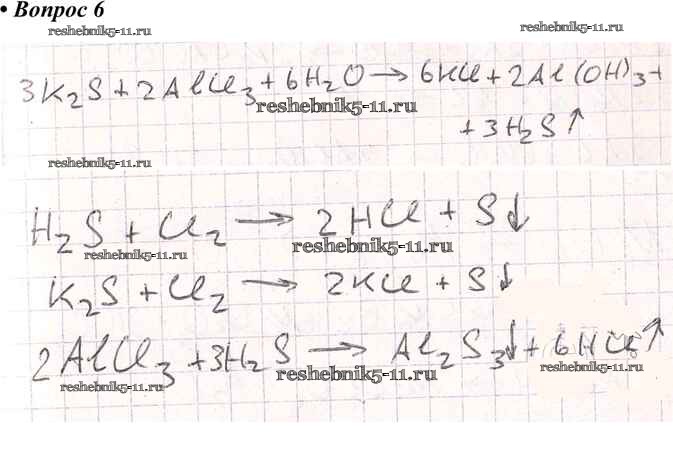 • Вопрос 6
reshebnik5-11.ru
reshebnik5-11.ru
3K₂S + 2AlCl₃ + 6H₂O → 6KCl + 2Al(OH)₃ +
reshebnik5-11.ru
+ 3H₂S ↑
reshebnik5-11.ru
H₂S + Cl₂ → 2HCl + S↓
reshebnik5-11.ru
reshebnik5-11.ru
K₂S + Cl₂ → 2KCl + S↓
2AlCl₃ + 3H₂S → Al₂S₃↓ + 6HCl↑
reshebnik5-11.ru
reshebnik5-11.ru
reshebnik5-11.ru